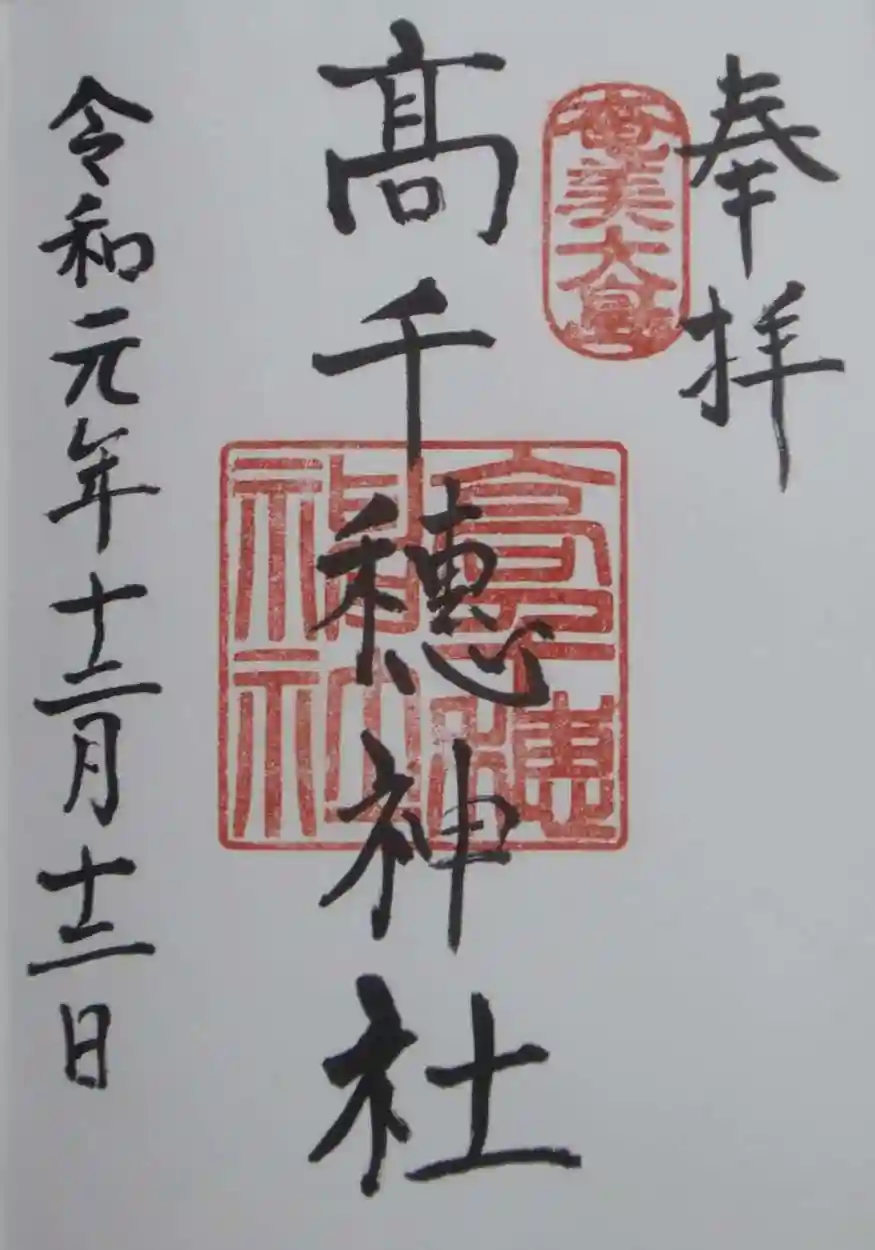 奉拝
奄美大島
髙千穂神社
高千穂神社
令和元年十二月十二日